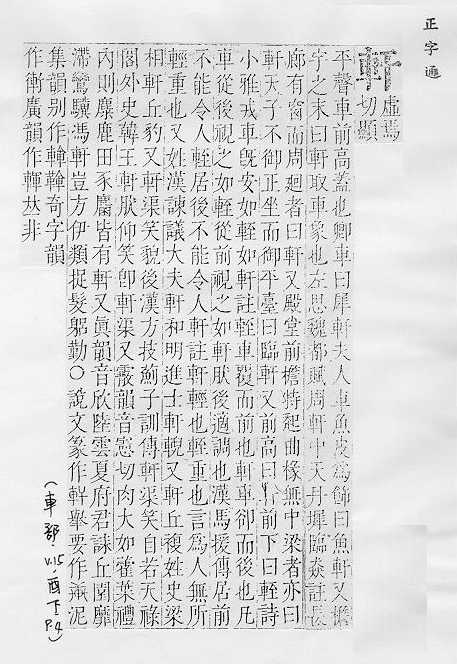 正字通
軒
虛焉
切顯
平聲車前高蓋也卿車曰犀軒夫人車魚皮為飾曰魚軒又簷
宇之末曰軒取車象也左思魏都賦周軒中天丹墀臨猋註長
廊有窗而周廻者曰軒又殿堂前擔特起曲椽無中梁者亦曰
軒天子不御正坐而御平臺曰臨軒又前高曰軒前下曰輊詩
小雅戎車旣安如輊如軒註輊車覆而前也軒車卻而後也凡
車從後視之如輊從前視之如軒肰後適調也漢馬援傳居前
不能令人輊居後不能令人軒註軒輕也輊重也言為人無所
輕重也又姓漢諫議大夫軒和明進士軒輗又軒丘複姓史梁
相軒丘豹又軒渠笑貌後漢方技薊子訓傳軒渠笑自若天祿
閣外史韓王軒肰仰笑卽軒渠又霰韻音憲切肉大如藿葉禮
內則麋鹿田豕麕皆有軒又眞韻音欣陸雲夏府君誄丘園靡
滯鸞驥馮軒豈方伊類捉髮躬勤〇說文篆作軒舉要作䡣泥
集韻別作䡣䡣奇字韻
作衝廣韻作㡆𠀤非
(車部.V.15.酉下P.4)